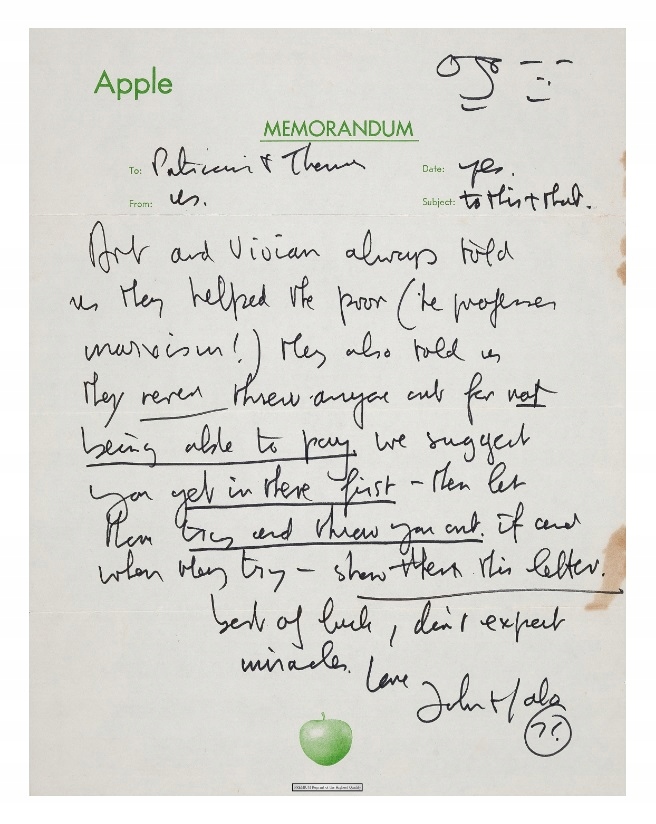 Apple
MEMORANDUM
To: & Date: yes.
From: us. Subject: to this + that.
Art and Vivian always told
us they helped the poor (he professes
marxism!) they also told us
they never threw anyone out for not
being able to pay. we suggest
you get in there first - then let
them try and throw you out. if and
when they try - show them this letter.
best of luck, don't expect
miracles. love
John +
??